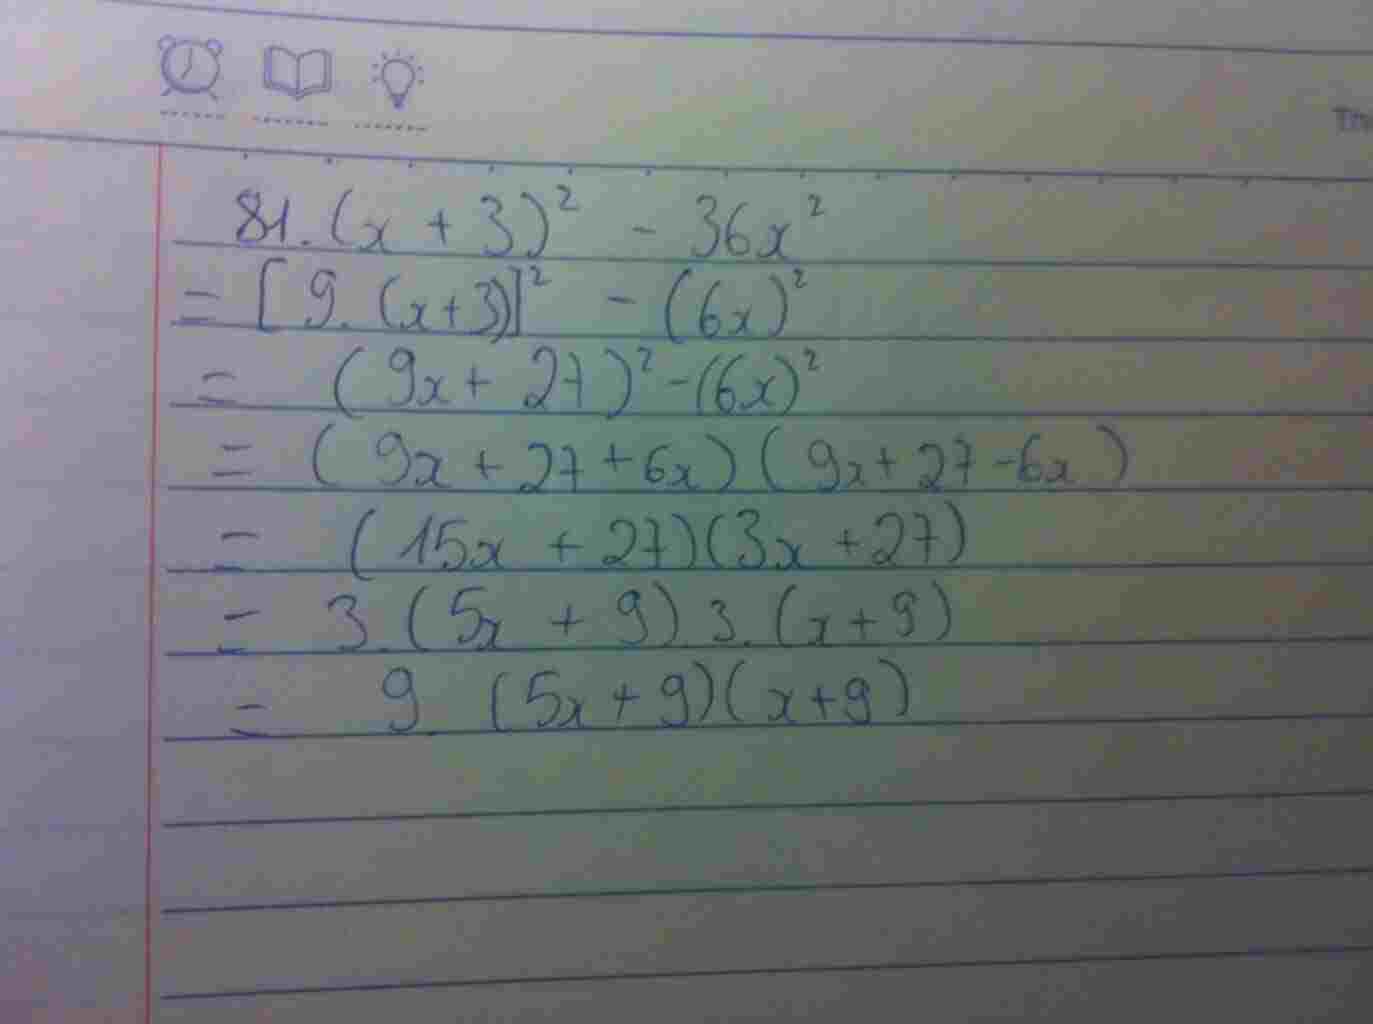 81.(x + 3)² - 36x²
= [9.(x+3)]² - (6x)²
= (9x + 27)² - (6x)²
= (9x + 27 + 6x)(9x + 27 - 6x)
= (15x + 27)(3x + 27)
= 3.(5x + 9).3.(x+9)
= 9.(5x+9)(x+9)